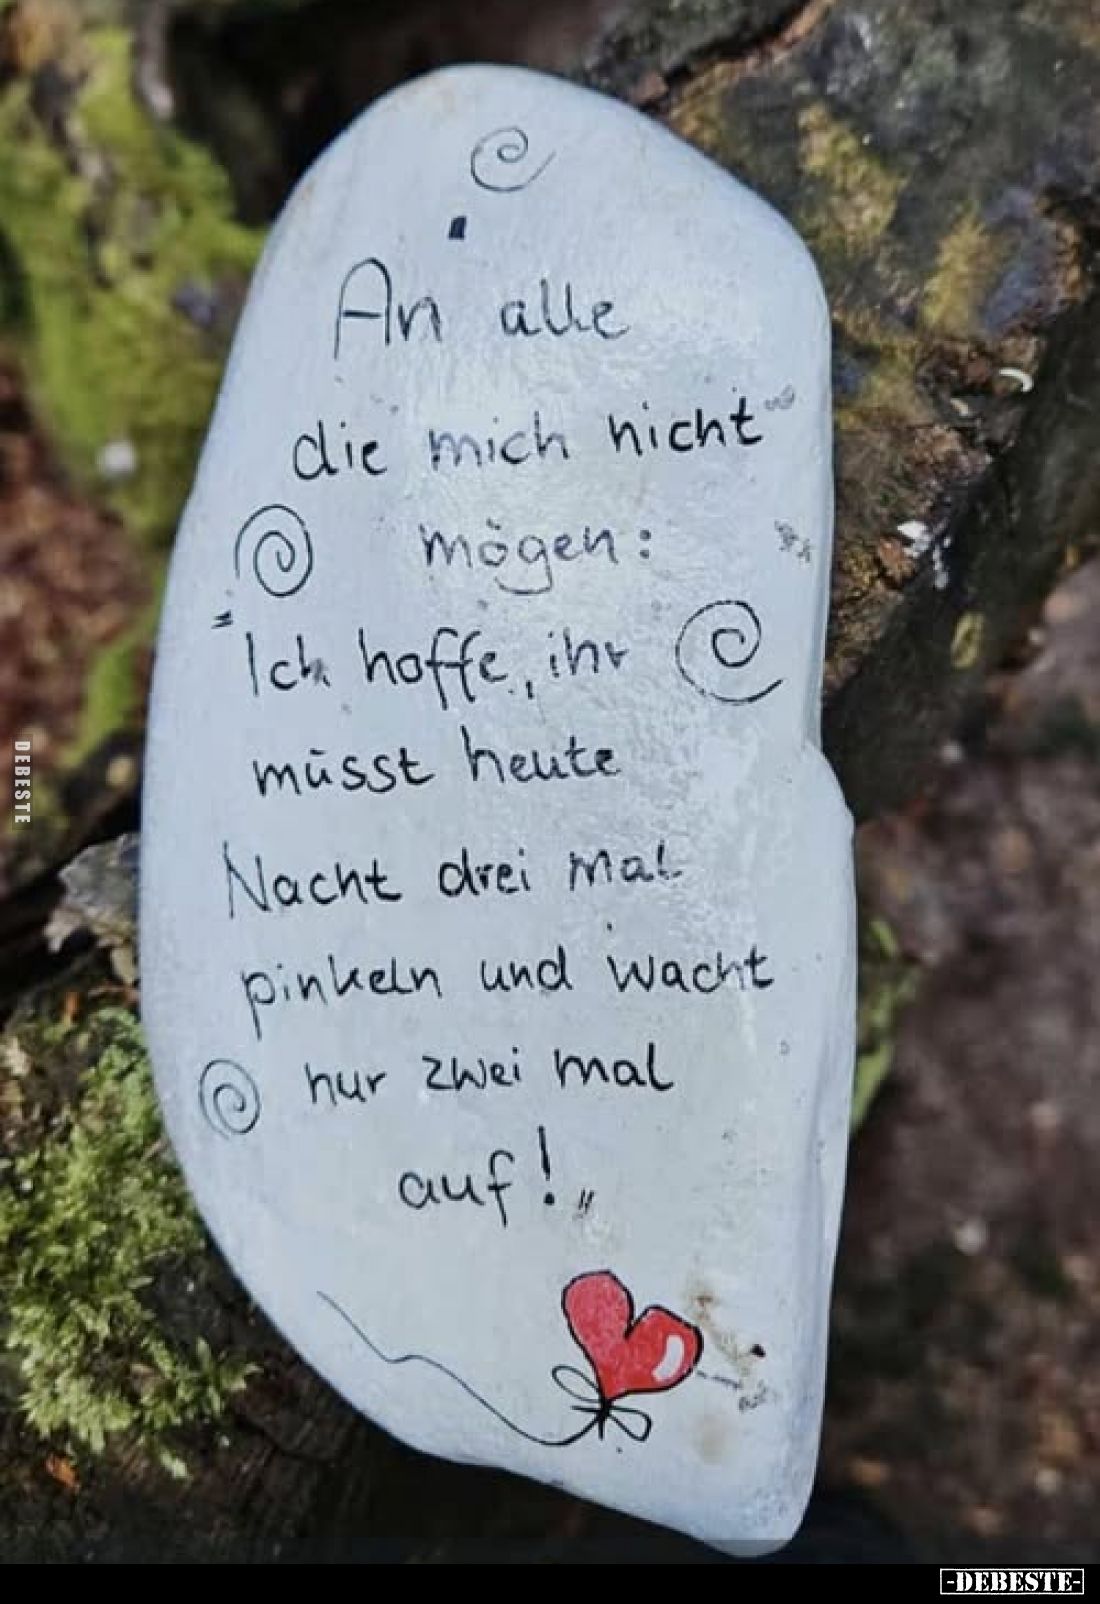 An alle
die mich nicht
mögen:
"Ich hoffe, ihr
müsst heute
Nacht drei mal
pinkeln und wacht
nur zwei mal
auf!"
DEBESTE
-DEBESTE-